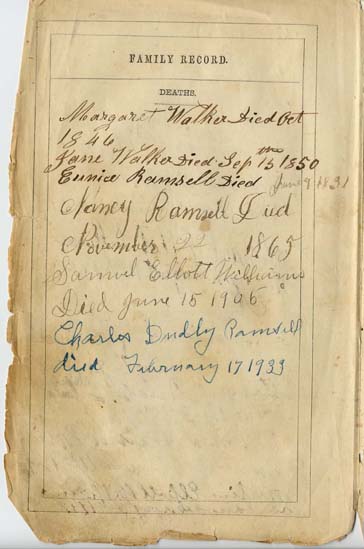 FAMILY RECORD.
DEATHS.
Margaret Walker Died Oct
1846
Jane Walker Died Sep 15 the 1850
Eunice Ramsell Died June 9 1831
Nancy Ramsell Died
November 22 1865
Samuel Elliott Williams
Died June 15 1906
Charles Dudly Ramsell
died February 17 1933